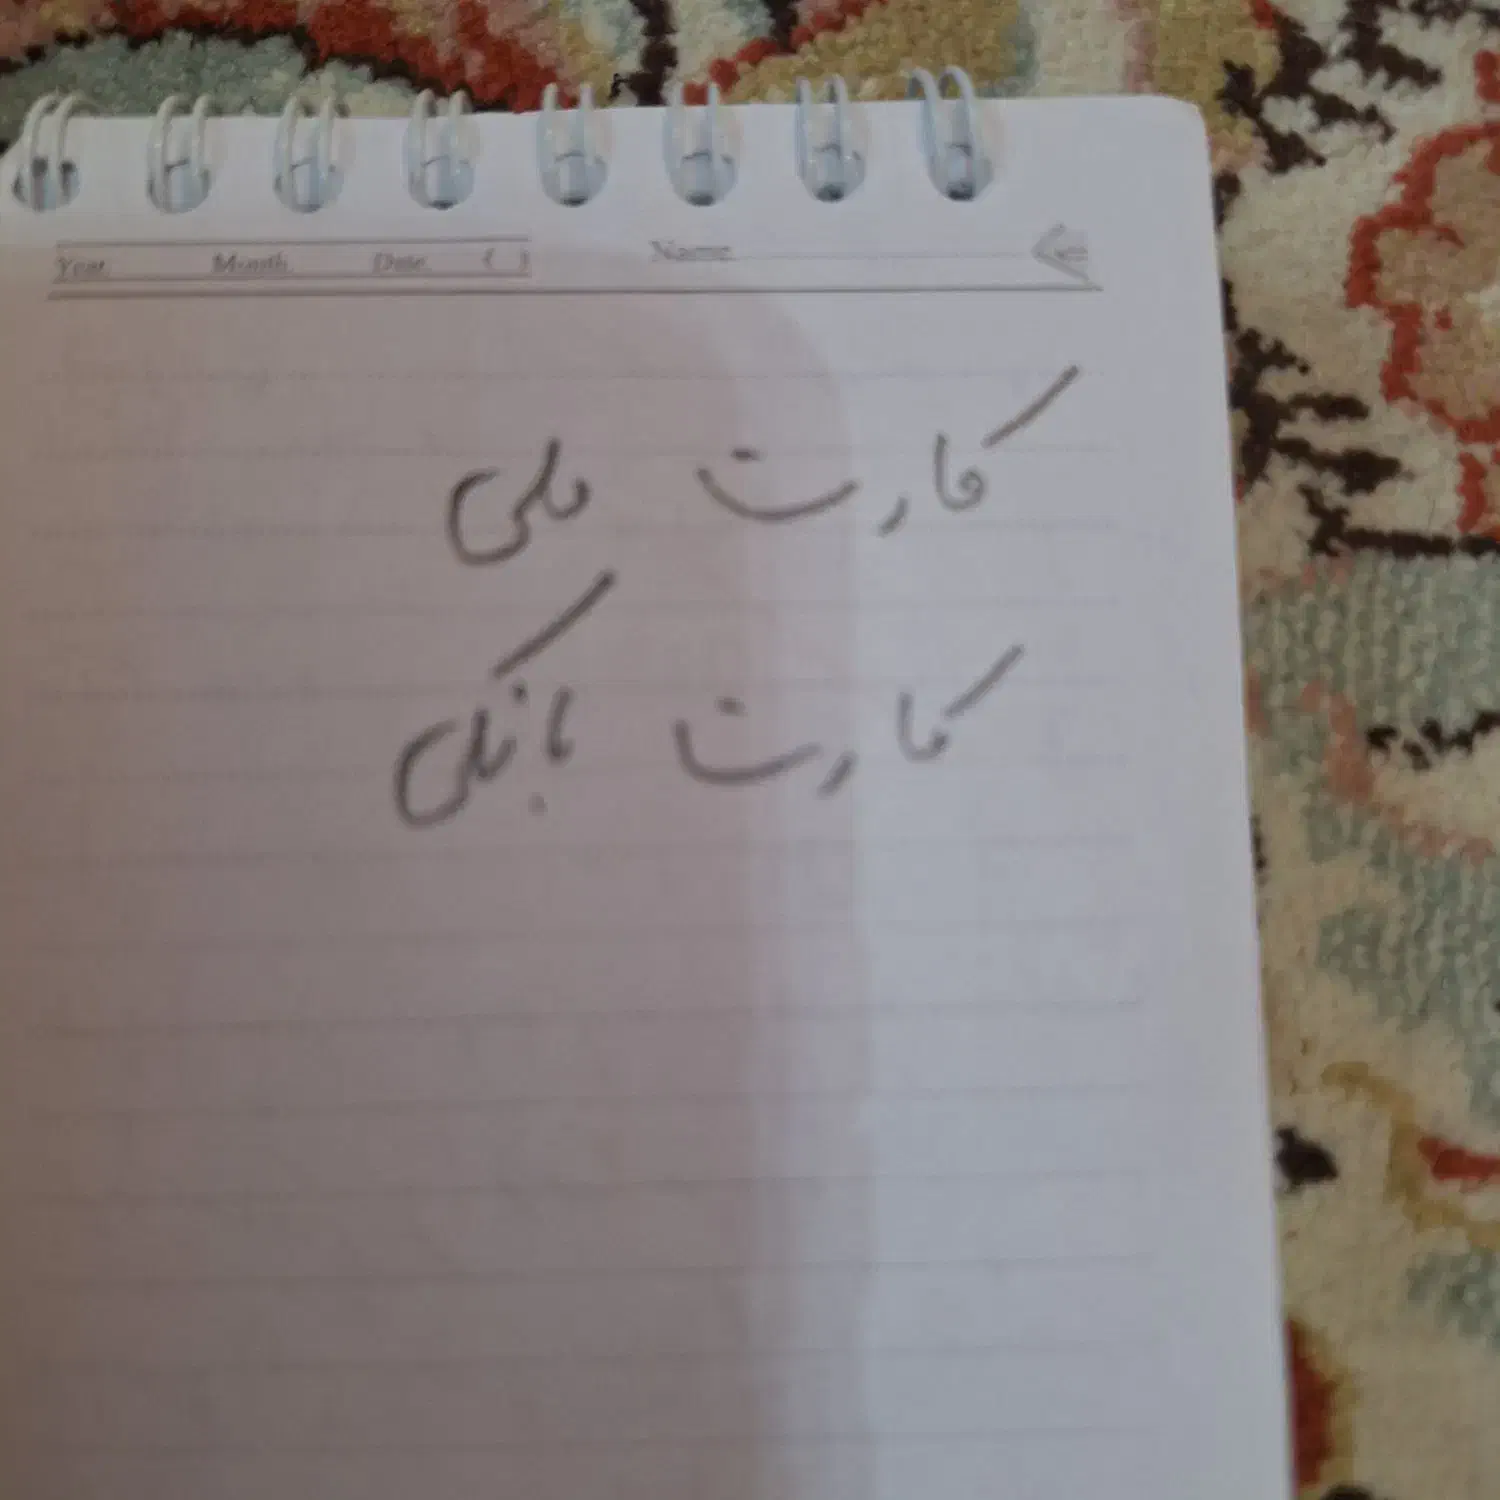 Year Month Date ( ) Name
کارت ملی
کارت بانکی